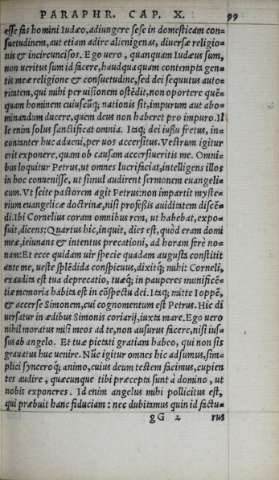 PARAPHR. CAP. X. 99
esse fas homini Iudæo, adiungere sese in domesticam con-
suetudinem, aut etiam adire alienigenas, diuersæ religio-
nis & incircuncisos. Ego uero, quanquam Iudæus sum,
non ueritus sum id facere, haudquaquam contempta gen-
tis meæ religione & consuetudine, sed dei sequutus auto-
ritatem, qui mihi per uisionem ostēdit, non oportere quē-
quam hominem cuiusuīsq; nationis sit, impurum aut abo-
minandum ducere, quem deus non haberet pro impuro. Il
le enim solus sanctificat omnia. Itaq; dei iussu fretus, in-
contanter huc adueni, per uos accersitus. Vestrum igitur
erit exponere, quam ob causam accersiueritis me. Omni-
bus loquitur Petrus, ut omnes lucrificcat, intelligens illos
in hoc conuenisse, ut simul audirent sermonem euangeli-
cum. Vt scite pastorem agit Petrus: non impartit myste-
rium euangelicæ doctrinæ, nisi professis auiditatem discē-
di. Ibi Cornelius coram omnibus rem, ut habebat, expo-
suit, dicens: Quartus hic, inquit, dies est, quòd eram domi
meæ, ieiunans & intentus precationi, ad horam ferè no-
nam: Et ecce quidam uir specie quadam augusta constitit
ante me, ueste splēdida conspicuus, dixitq; mihi: Corneli,
exaudita est tua deprecatio, tuæq; in pauperes munificē-
tiæ memoria habita est in cōspectu dei. Itaq; mitte Ioppē,
& accerse Simonem, cui cognomentum est Petrus. Hic di
uersatur in ædibus Simonis coriarij, iuxta mare. Ego uero
nihil moratus misi meos ad te, non ausurus facere, nisi ius-
sus ab angelo. Et tuæ pietati gratiam habeo, qui non sis
grauatus huc uenire. Nūc igitur omnes hic adsumus, sim-
plici synceroq; animo, cuius deum testem facimus, cupien
tes audire, quæcunque tibi præcepta sunt à domino, ut
nobis exponeres. Id enim angelus mihi pollicitus est,
qui præbuit hanc fiduciam: nec dubitamus quin id factu-
gG 2 rus